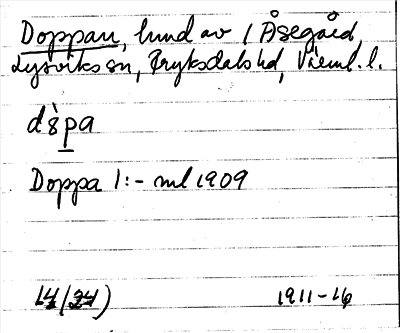 Doppan, hund av 1 Åsegård,
Lysviks sn, Fryksdals hd, Värml. l.
dòpa
Doppa 1:- ml 1909
14/(24) 1911-16